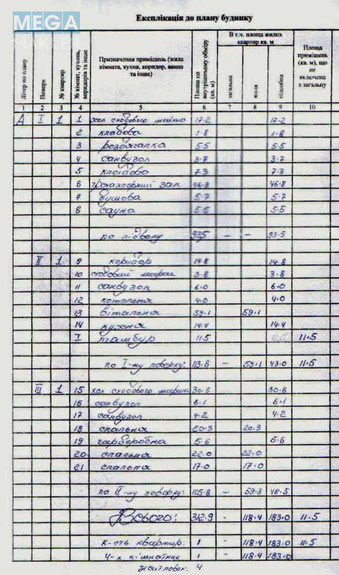 MEGA
Експлікація до плану будинку
Літер по плану | Поверх | № квартир | № кімнат, кухонь, коридорів та інше | Призначення приміщень (жила кімната, кухня, коридор, ванна та інше) | Площа по внутрішньому обміру (кв. м) | В т.ч. площа жилих квартир кв. м | загальна | жила | підсобна | Площа приміщень (кв. м), що не включена в загальну
1 2 3 4 5 6 7 8 9 10
А I 1 1 хол сходового маршу 17.2 17.2
2 кладова 1.8 1.8
3 роздягалка 5.5 5.5
4 санвузол 3.7 3.7
5 кладова 7.3 7.3
6 зал 46.8 46.8
7 душова 5.7 5.7
8 сауна 5.5 5.5
по підвалу 93.5 - - 93.5
II 1 9 коридор 14.8 14.8
10 сходовий марш 3.8 3.8
11 санвузол 6.0 6.0
12 котельна 4.0 4.0
13 вітальня 59.1 59.1
14 кухня 14.4 14.4
I тамбур 11.5 11.5
по I-му поверху: 113.6 - 59.1 43.0 11.5
III 1 15 хол сходового маршу 30.6 30.6
16 санвузол 6.1 6.1
17 санвузол 4.2 4.2
18 спальня 20.3 20.3
19 гардеробна 5.6 5.6
20 спальня 22.0 22.0
21 спальня 17.0 17.0
по II-му поверху: 105.8 - 59.3 46.5
Всього: 312.9 - 118.4 183.0 11.5
к-сть квартир: 1 - 118.4 183.0 11.5
4-х кімнатних 1 - 118.4 183.0
4